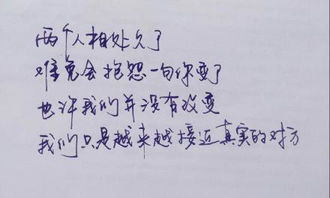 两个人相处久了
难免会抱怨一句你变了
也许我们并没有改变
我们只是越来越接近真实的对方